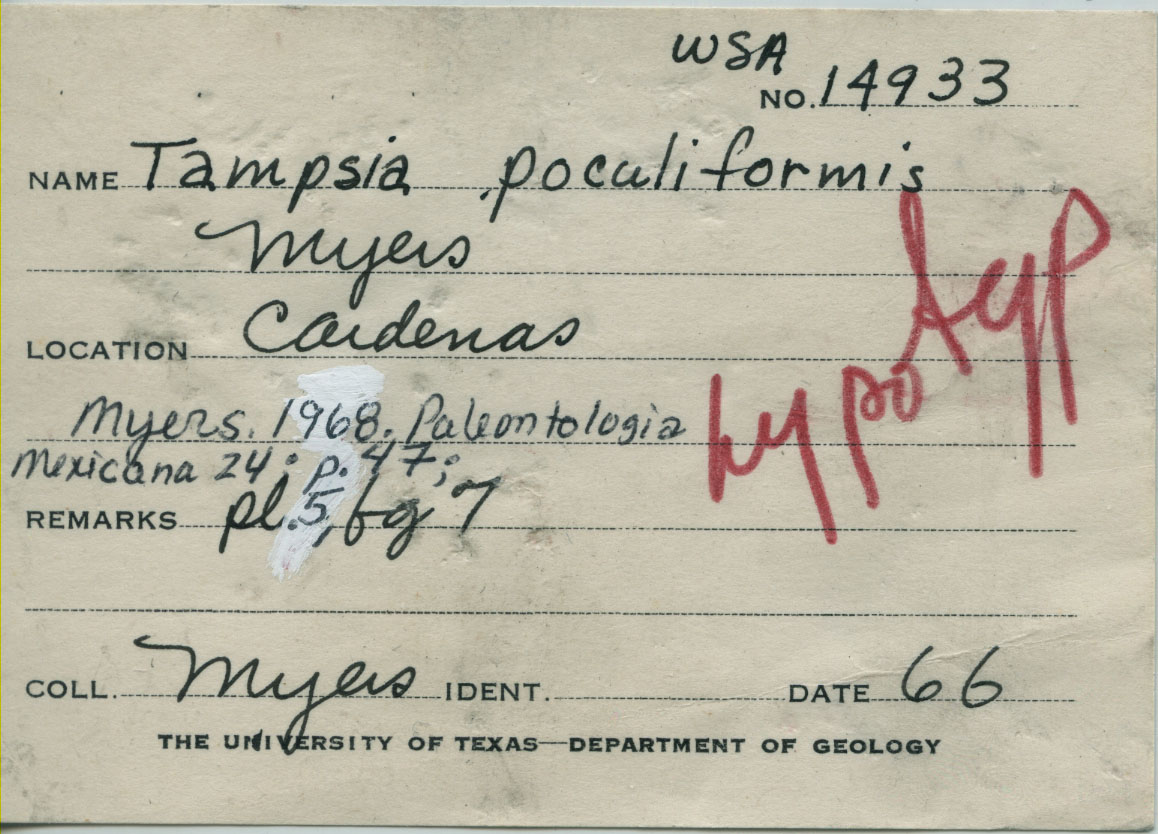 WSA
NO. 14933
NAME Tampsia poculiformis
Myers
LOCATION Cardenas
Myers. 1968. Paleontologia
Mexicana 24; p. 47;
REMARKS pl. 5, fg 7
hypotyp
COLL. Myers IDENT. DATE 66
THE UNIVERSITY OF TEXAS—DEPARTMENT OF GEOLOGY